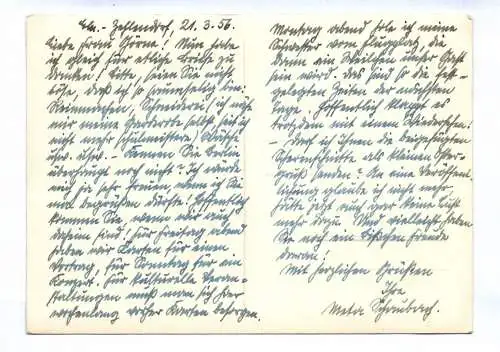 Bln.- Zehlendorf, 21. 3. 56.
Liebe Frau Görne! Nun habe
ich gleich für etliche Briefe zu
danken! Bitte, seien Sie nicht
böse, daß ich so saumselig bin:
Reinmachen, Schneidern; ich nähe
mir meine Garderobe selbst, seit ich
nicht mehr schulmeistere,
usw. usw. – Kennen Sie Berlin
überhaupt noch nicht? Ich würde
mich ja sehr freuen, wenn ich Sie
mal begrüßen dürfte! Hoffentlich
kommen Sie, wenn wir auch
daheim sind! Für Freitag abend
haben wir Karten für einen
Vortrag, für Sonntag für ein
Konzert. Für kulturelle Veran-
staltungen muß man sich hier
wochenlang vorher Karten besorgen.
Montag abend hole ich meine
Schwester vom Flugplatz, die
dann ein Weilchen unser Gast
sein wird. Das sind so die fest-
gelegten Zeiten der nächsten
Tage. Hoffentlich klappt es
trotzdem mit einem Wiedersehen!
– Darf ich Ihnen die beigefügten
Scherenschnitte als kleinen Oster-
gruß senden? An eine Veröffent-
lichung glaube ich nicht mehr,
hätte jetzt auch gar keine Lust
mehr dazu. Und vielleicht haben
Sie noch ein bißchen Freude
daran!
Mit herzlichen Grüßen
Ihre
Meta Schaubach.